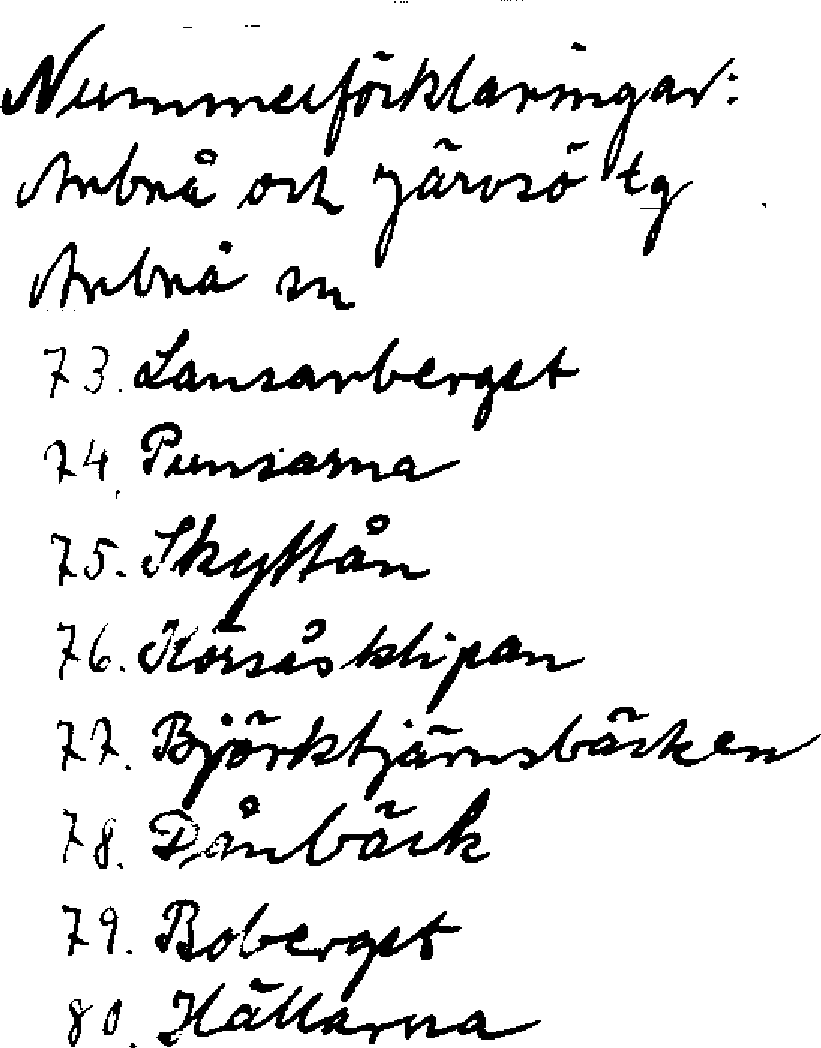 Nummerförklaringar:
Arbrå och Järvsö tg
Arbrå sn
73. Lansarberget
74. Punsarna
75. Skyttån
76. Körsåsklipan
77. Björktjärnsbäcken
78. Dånbäck
79. Boberget
80. Hällarna